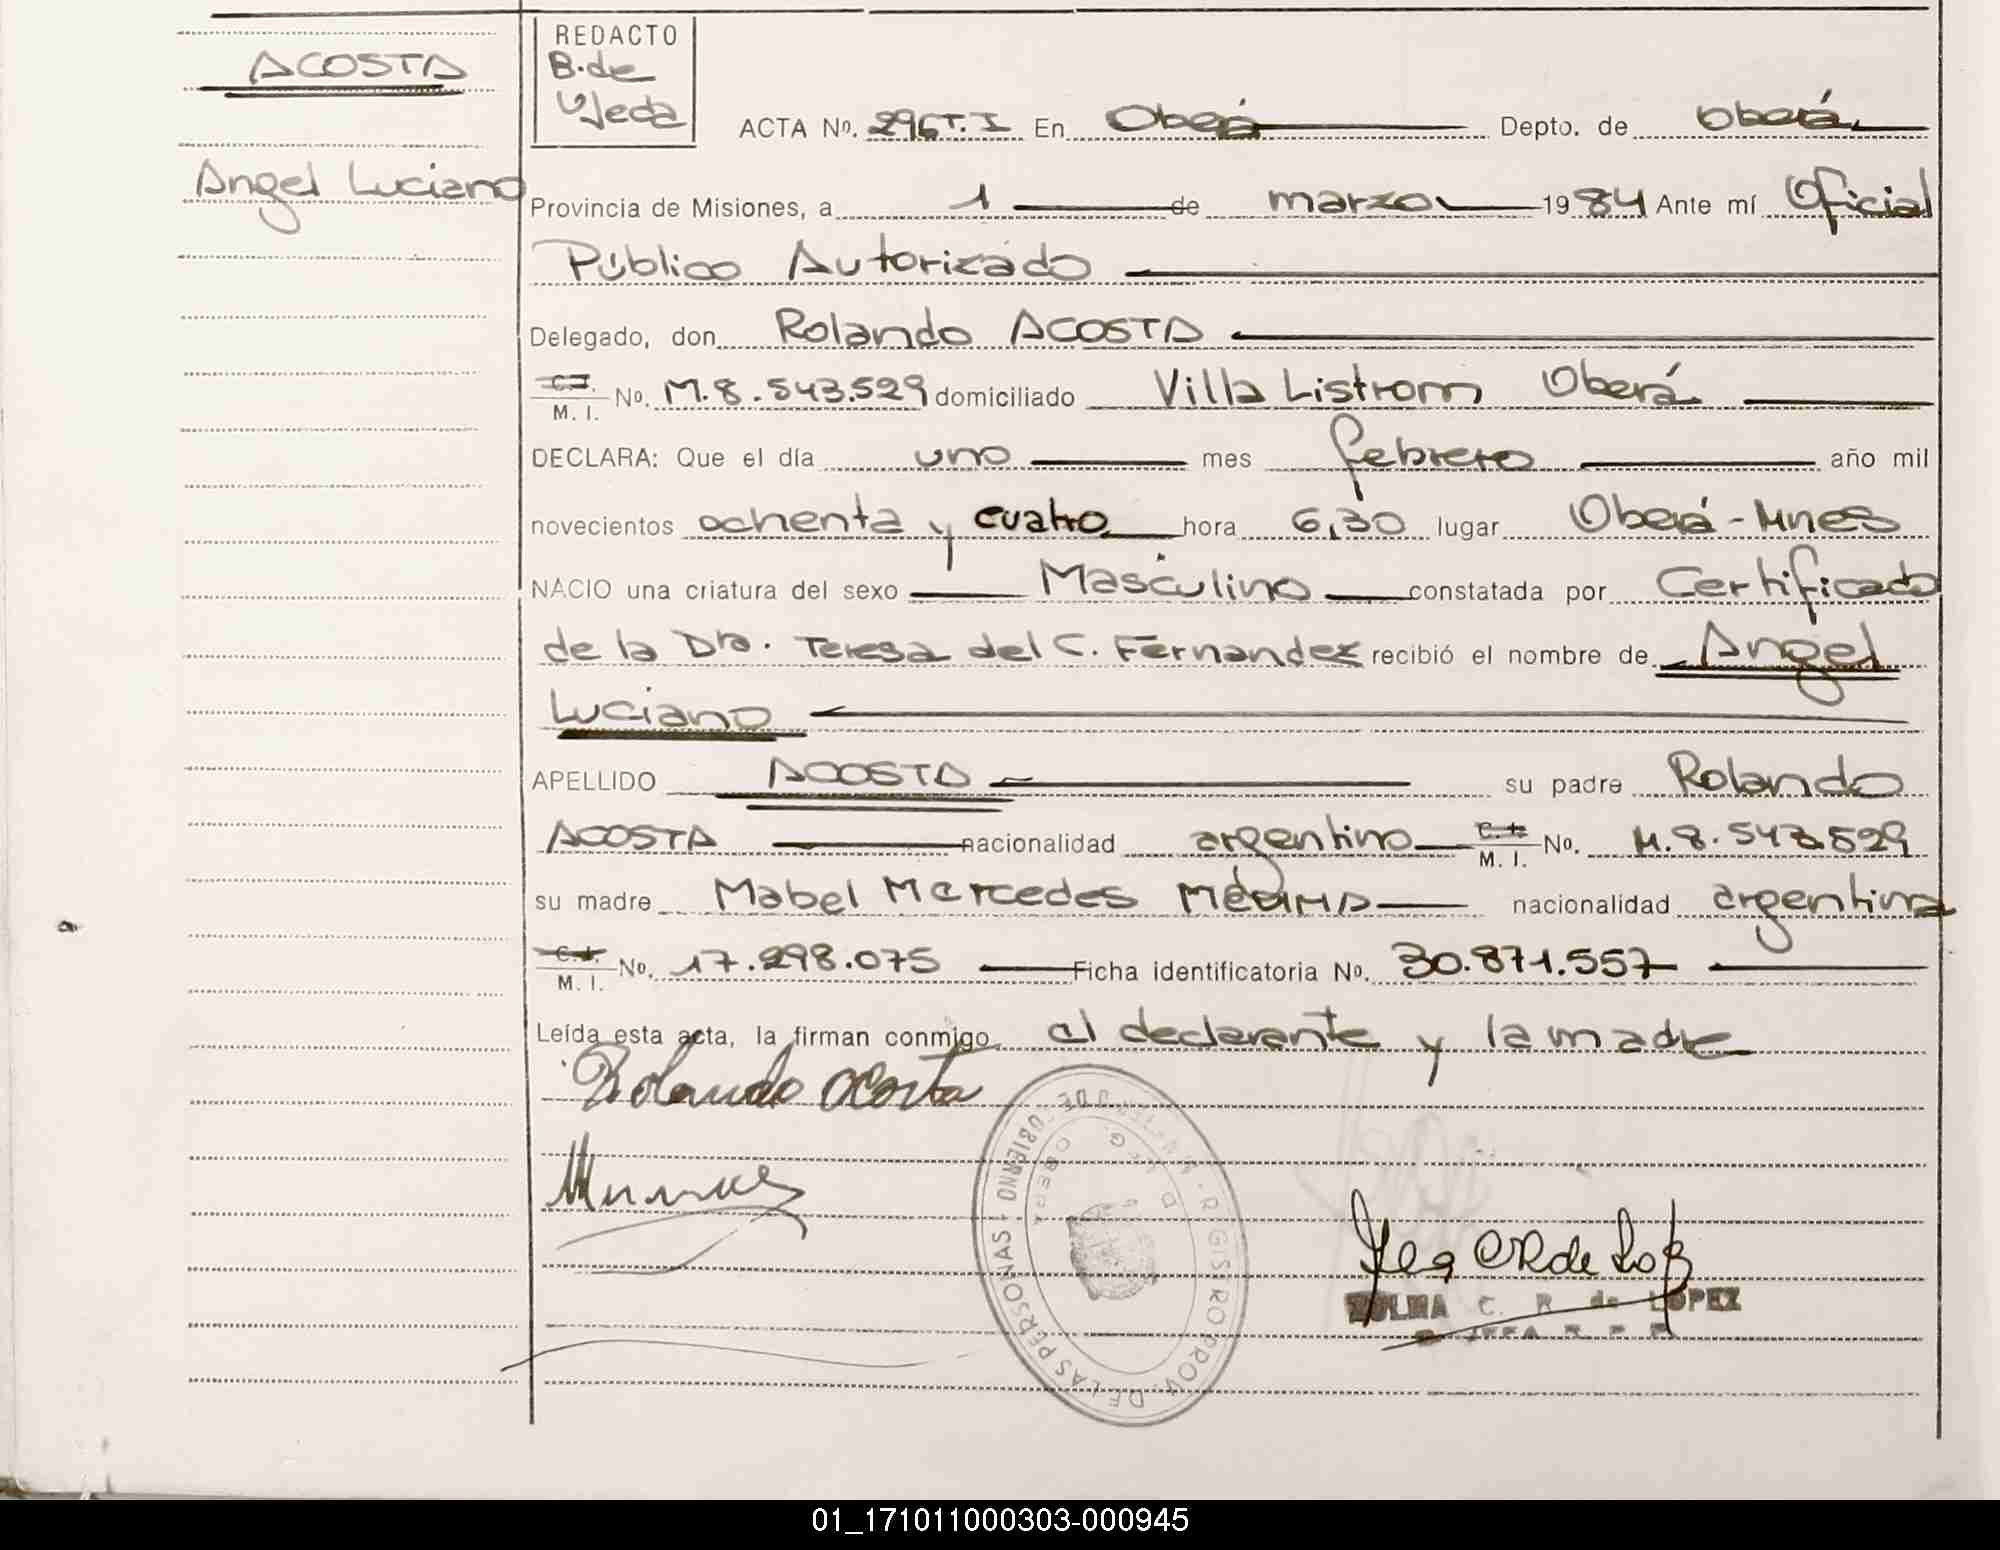 ACOSTA
Angel Luciano
REDACTO
B. de
Ojeda
ACTA No. 296 T. I En Oberá Depto. de Oberá
Provincia de Misiones, a 1 de marzo 1984 Ante mí Oficial
Público Autorizado
Delegado, don Rolando ACOSTA
C.I.
M. I. No. M.8.543.529 domiciliado Villa Listrom Oberá
DECLARA: Que el día uno mes febrero año mil
novecientos ochenta y cuatro hora 6,30 lugar Oberá - Mnes
NACIO una criatura del sexo Masculino constatada por Certificado
de la Dra. Teresa del C. Fernandez recibió el nombre de Angel
Luciano
APELLIDO ACOSTA su padre Rolando
ACOSTA nacionalidad argentino C.I.
M. I. No. M.8.543.529
su madre Mabel Mercedes MEDINA nacionalidad argentina
C.I.
M. I. No. 17.298.075 Ficha identificatoria No. 30.871.557
Leída esta acta, la firman conmigo el declarante y la madre
Rolando Acosta
REGISTRO PROV. DE LAS PERSONAS
OBERA
ZULMA C. R. de LOPEZ
01_171011000303-000945